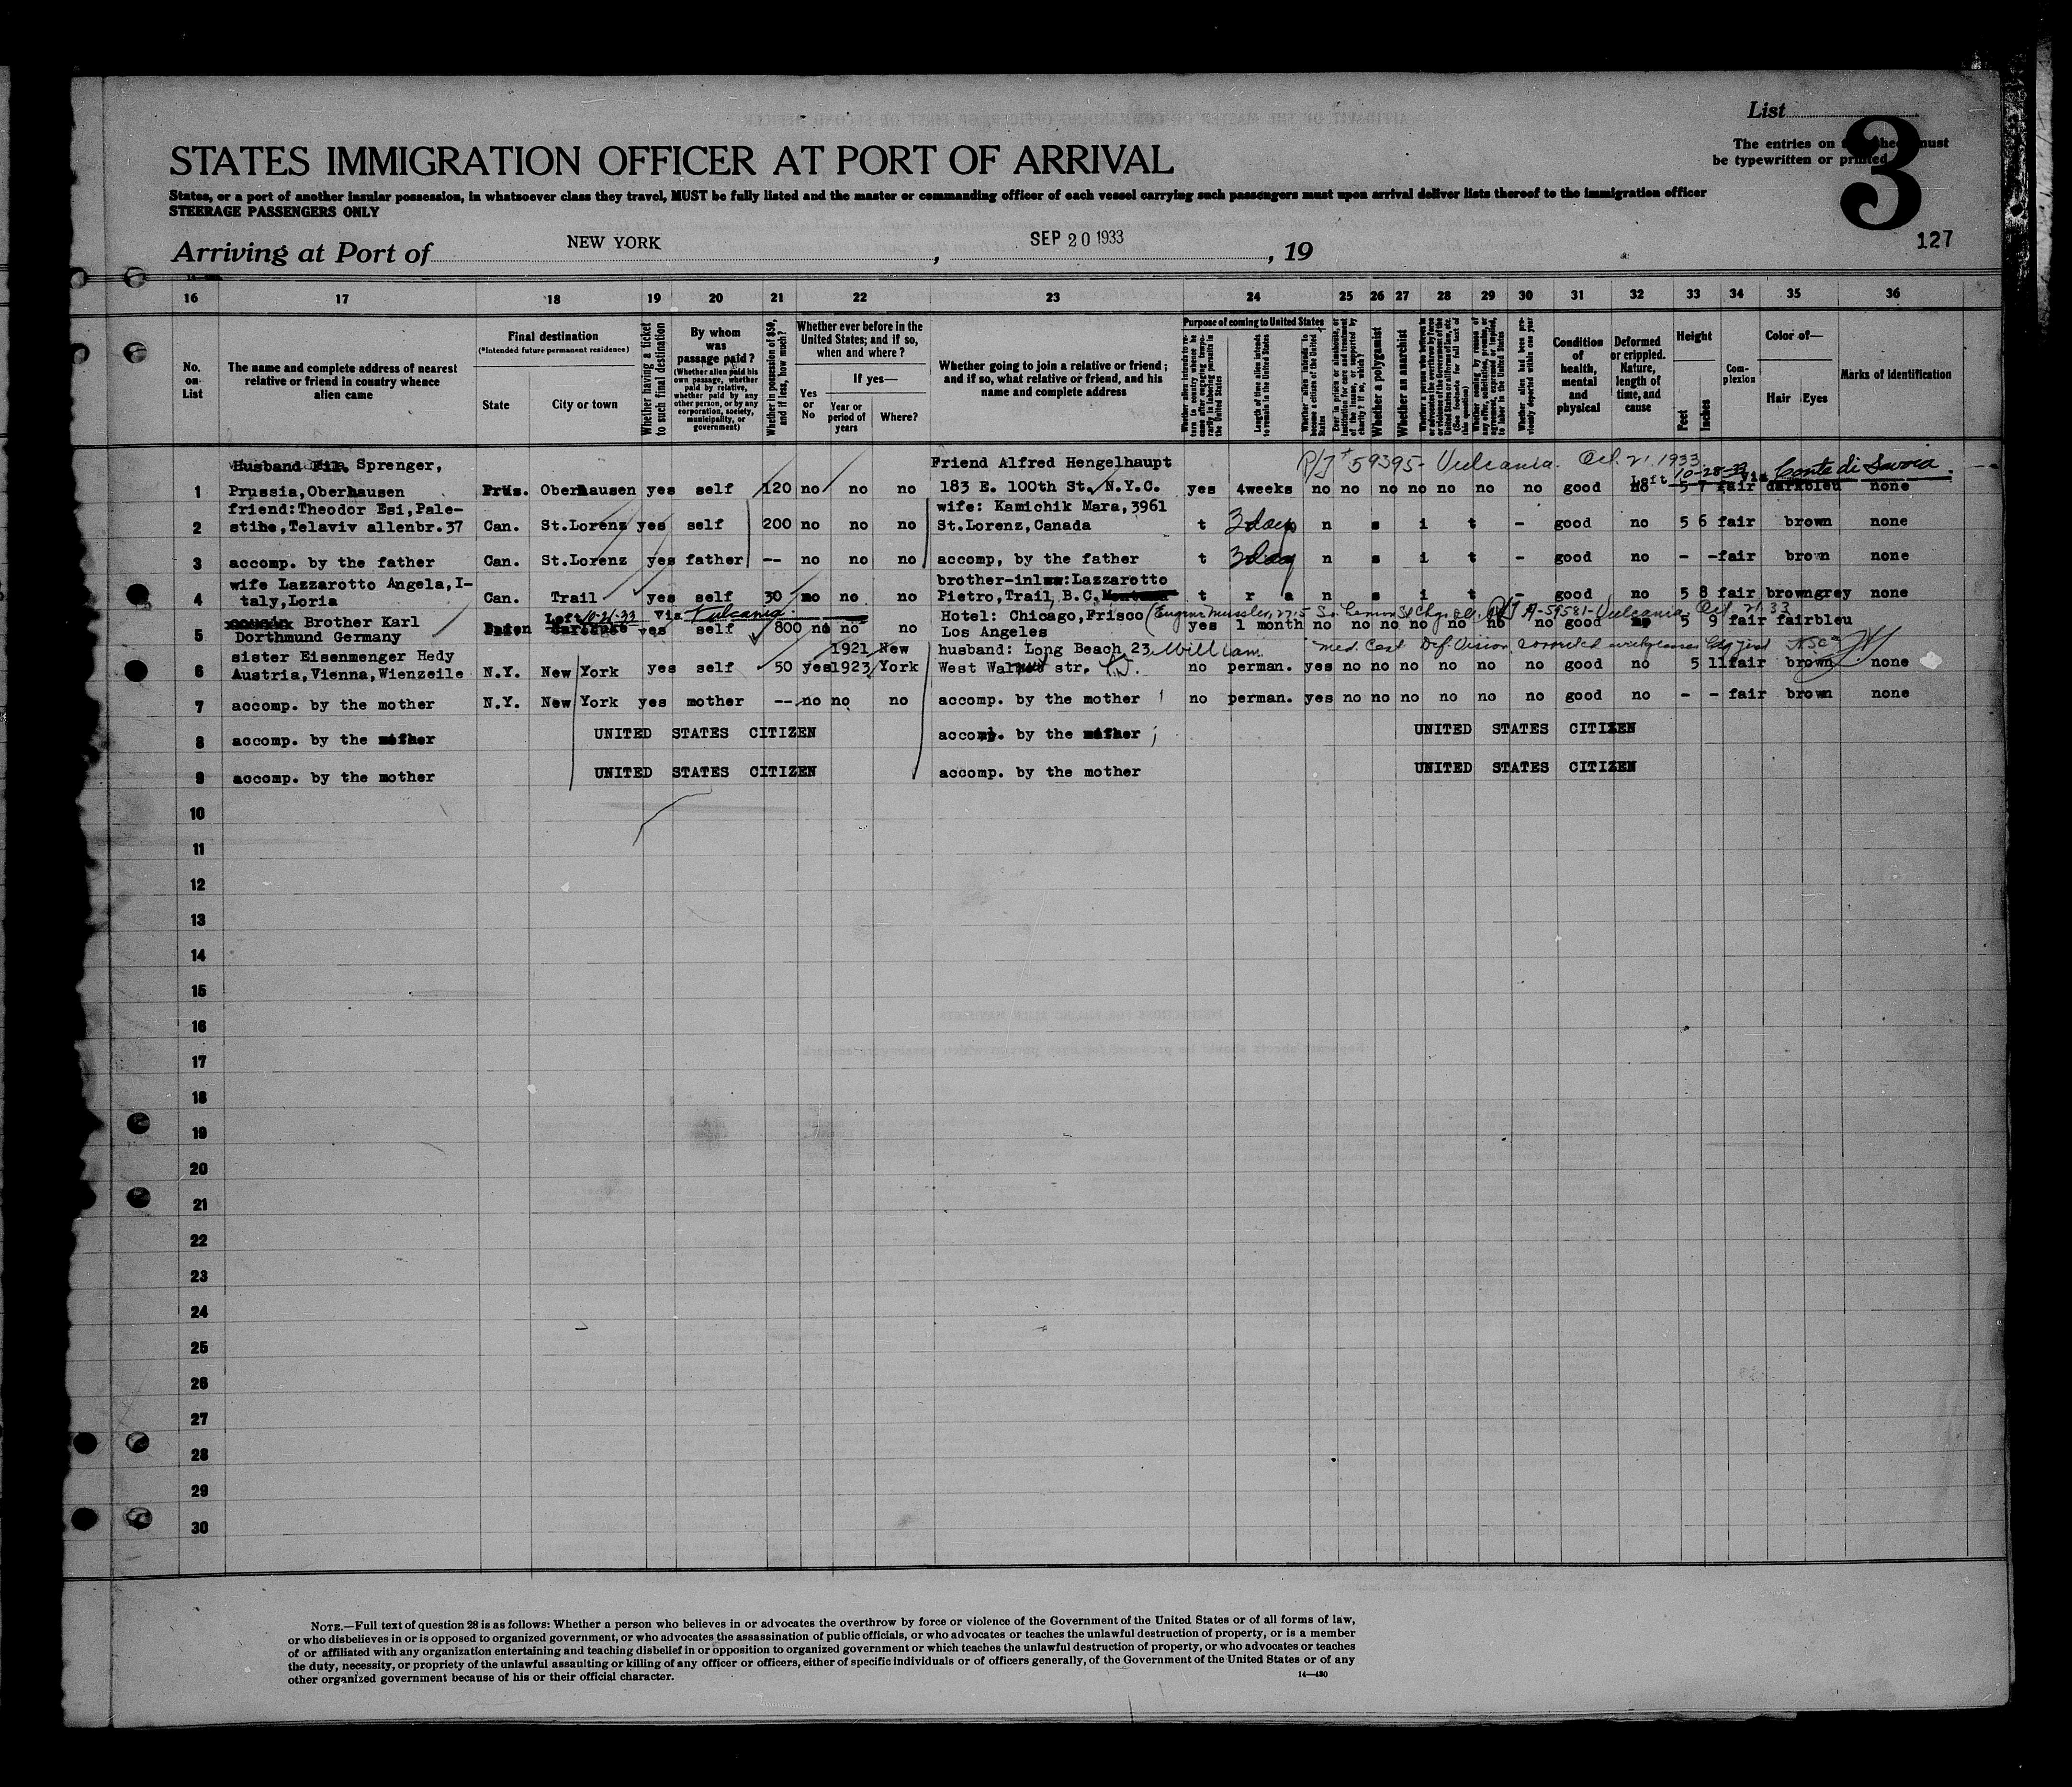 List
3
The entries on must
be typewritten or printed
STATES IMMIGRATION OFFICER AT PORT OF ARRIVAL
States, or a port of another insular possession, in whatsoever class they travel, MUST be fully listed and the master or commanding officer of each vessel carrying such passengers must upon arrival deliver lists thereof to the immigration officer
STEERAGE PASSENGERS ONLY
127
Arriving at Port of NEW YORK, SEP 20 1933, 19
16 17 18 19 20 21 22 23 24 25 26 27 28 29 30 31 32 33 34 35 36
No. on List
The name and complete address of nearest relative or friend in country whence alien came
Final destination
(*Intended future permanent residence)
State
City or town
Whether having a ticket to such final destination
By whom was passage paid?
(Whether alien paid his own passage, whether paid by relative, whether paid by any other person, or by any corporation, society, municipality, or government)
Whether in possession of $50, and if less, how much?
Whether ever before in the United States; and if so, when and where?
Yes or No
If yes—
Year or period of years
Where?
Whether going to join a relative or friend; and if so, what relative or friend, and his name and complete address
Purpose of coming to United States
Length of time alien intends to remain in the United States
Whether alien intends to become a citizen of the United States
Whether a polygamist
Whether an anarchist
Whether alien had been previously deported within one year
Condition of health, mental and physical
Deformed or crippled. Nature, length of time, and cause
Height
Feet
Inches
Complexion
Color of—
Hair
Eyes
Marks of identification
Husband Sprenger, Friend Alfred Hengelhaupt 59395- Vulcania. Oct. 21. 1933
Left 10-28-33 via Conte di Savoia.
1 Prussia,Oberhausen Prus. Oberhausen yes self 120 no no no 183 E. 100th St. N.Y.C. yes 4weeks no no no no no no no good no 5 7 fair darkbleu none
friend:Theodor Esi,Pale- wife: Kamichik Mara, 3961
2 stine,Telaviv allenbr.37 Can. St.Lorenz yes self 200 no no no St.Lorenz,Canada t 3 days n s i t - good no 5 6 fair brown none
3 accomp. by the father Can. St.Lorenz yes father -- no no no accomp, by the father t 3 day n s i t - good no - - fair brown none
wife Lazzarotto Angela,I- brother-inlaw:Lazzarotto
4 taly,Loria Can. Trail yes self 30 no no no Pietro,Trail, B.C. t r a n s i t - good no 5 8 fair browngrey none
Left 10-21-33 via Vulcania.
Brother Karl Hotel: Chicago,Frisco A-59581-Vulcania. Oct. 21 33
5 Dorthmund Germany yes self 800 no no no Los Angeles yes 1 month no no no no no no no good no 5 9 fair fairbleu
sister Eisenmenger Hedy 1921 New husband: Long Beach 23 William Med. Cert Def. Vision
6 Austria,Vienna,Wienzeile N.Y. New York yes self 50 yes 1923 York West Walnut str. no perman. yes no no no no no no good no 5 11 fair brown none
7 accomp. by the mother N.Y. New York yes mother -- no no no accomp. by the mother no perman. yes no no no no no no good no - - fair brown none
8 accomp. by the UNITED STATES CITIZEN accomp. by the UNITED STATES CITIZEN
9 accomp. by the mother UNITED STATES CITIZEN accomp. by the mother UNITED STATES CITIZEN
10
11
12
13
14
15
16
17
18
19
20
21
22
23
24
25
26
27
28
29
30
NOTE.—Full text of question 28 is as follows: Whether a person who believes in or advocates the overthrow by force or violence of the Government of the United States or of all forms of law,
or who disbelieves in or is opposed to organized government, or who advocates the assassination of public officials, or who advocates or teaches the unlawful destruction of property, or is a member
of or affiliated with any organization entertaining and teaching disbelief in or opposition to organized government or which teaches the unlawful destruction of property, or who advocates or teaches
the duty, necessity, or propriety of the unlawful assaulting or killing of any officer or officers, either of specific individuals or of officers generally, of the Government of the United States or of any
other organized government because of his or their official character.
14—480